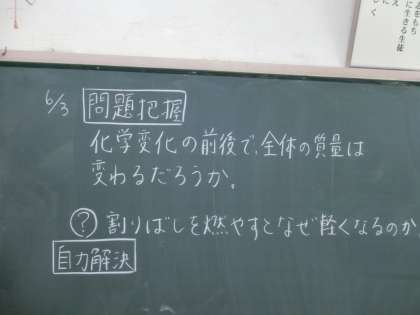 6/3 問題把握
化学変化の前後で、全体の質量は
変わるだろうか。
? 割りばしを燃やすとなぜ軽くなるのか
自力解決
をもち
に生きる生徒
え
に
く